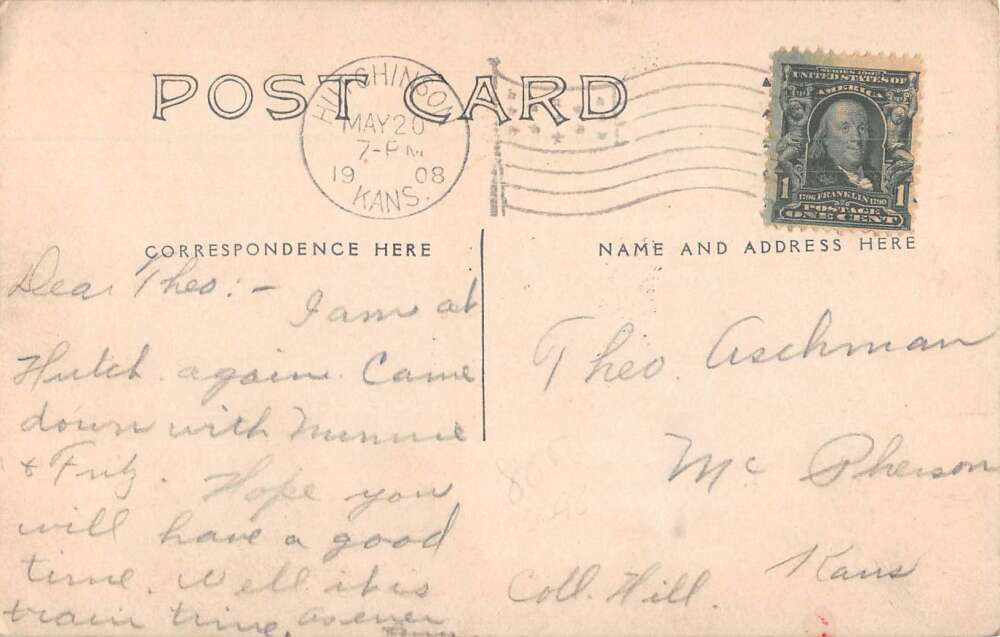 POST CARD
HUTCHINSON
MAY 20
7-PM
1908
KANS.
SERIES 1902
UNITED STATES OF
AMERICA
1 1
1706 FRANKLIN 1790
POSTAGE
ONE CENT
CORRESPONDENCE HERE
Dear Theo:-
I am at
Hutch again. Came
down with Minnie
& Fritz. Hope you
will have a good
time. Well it is
train time. as ever
NAME AND ADDRESS HERE
Theo. Aschman
Mc Pherson
Kans
Coll. Hill.